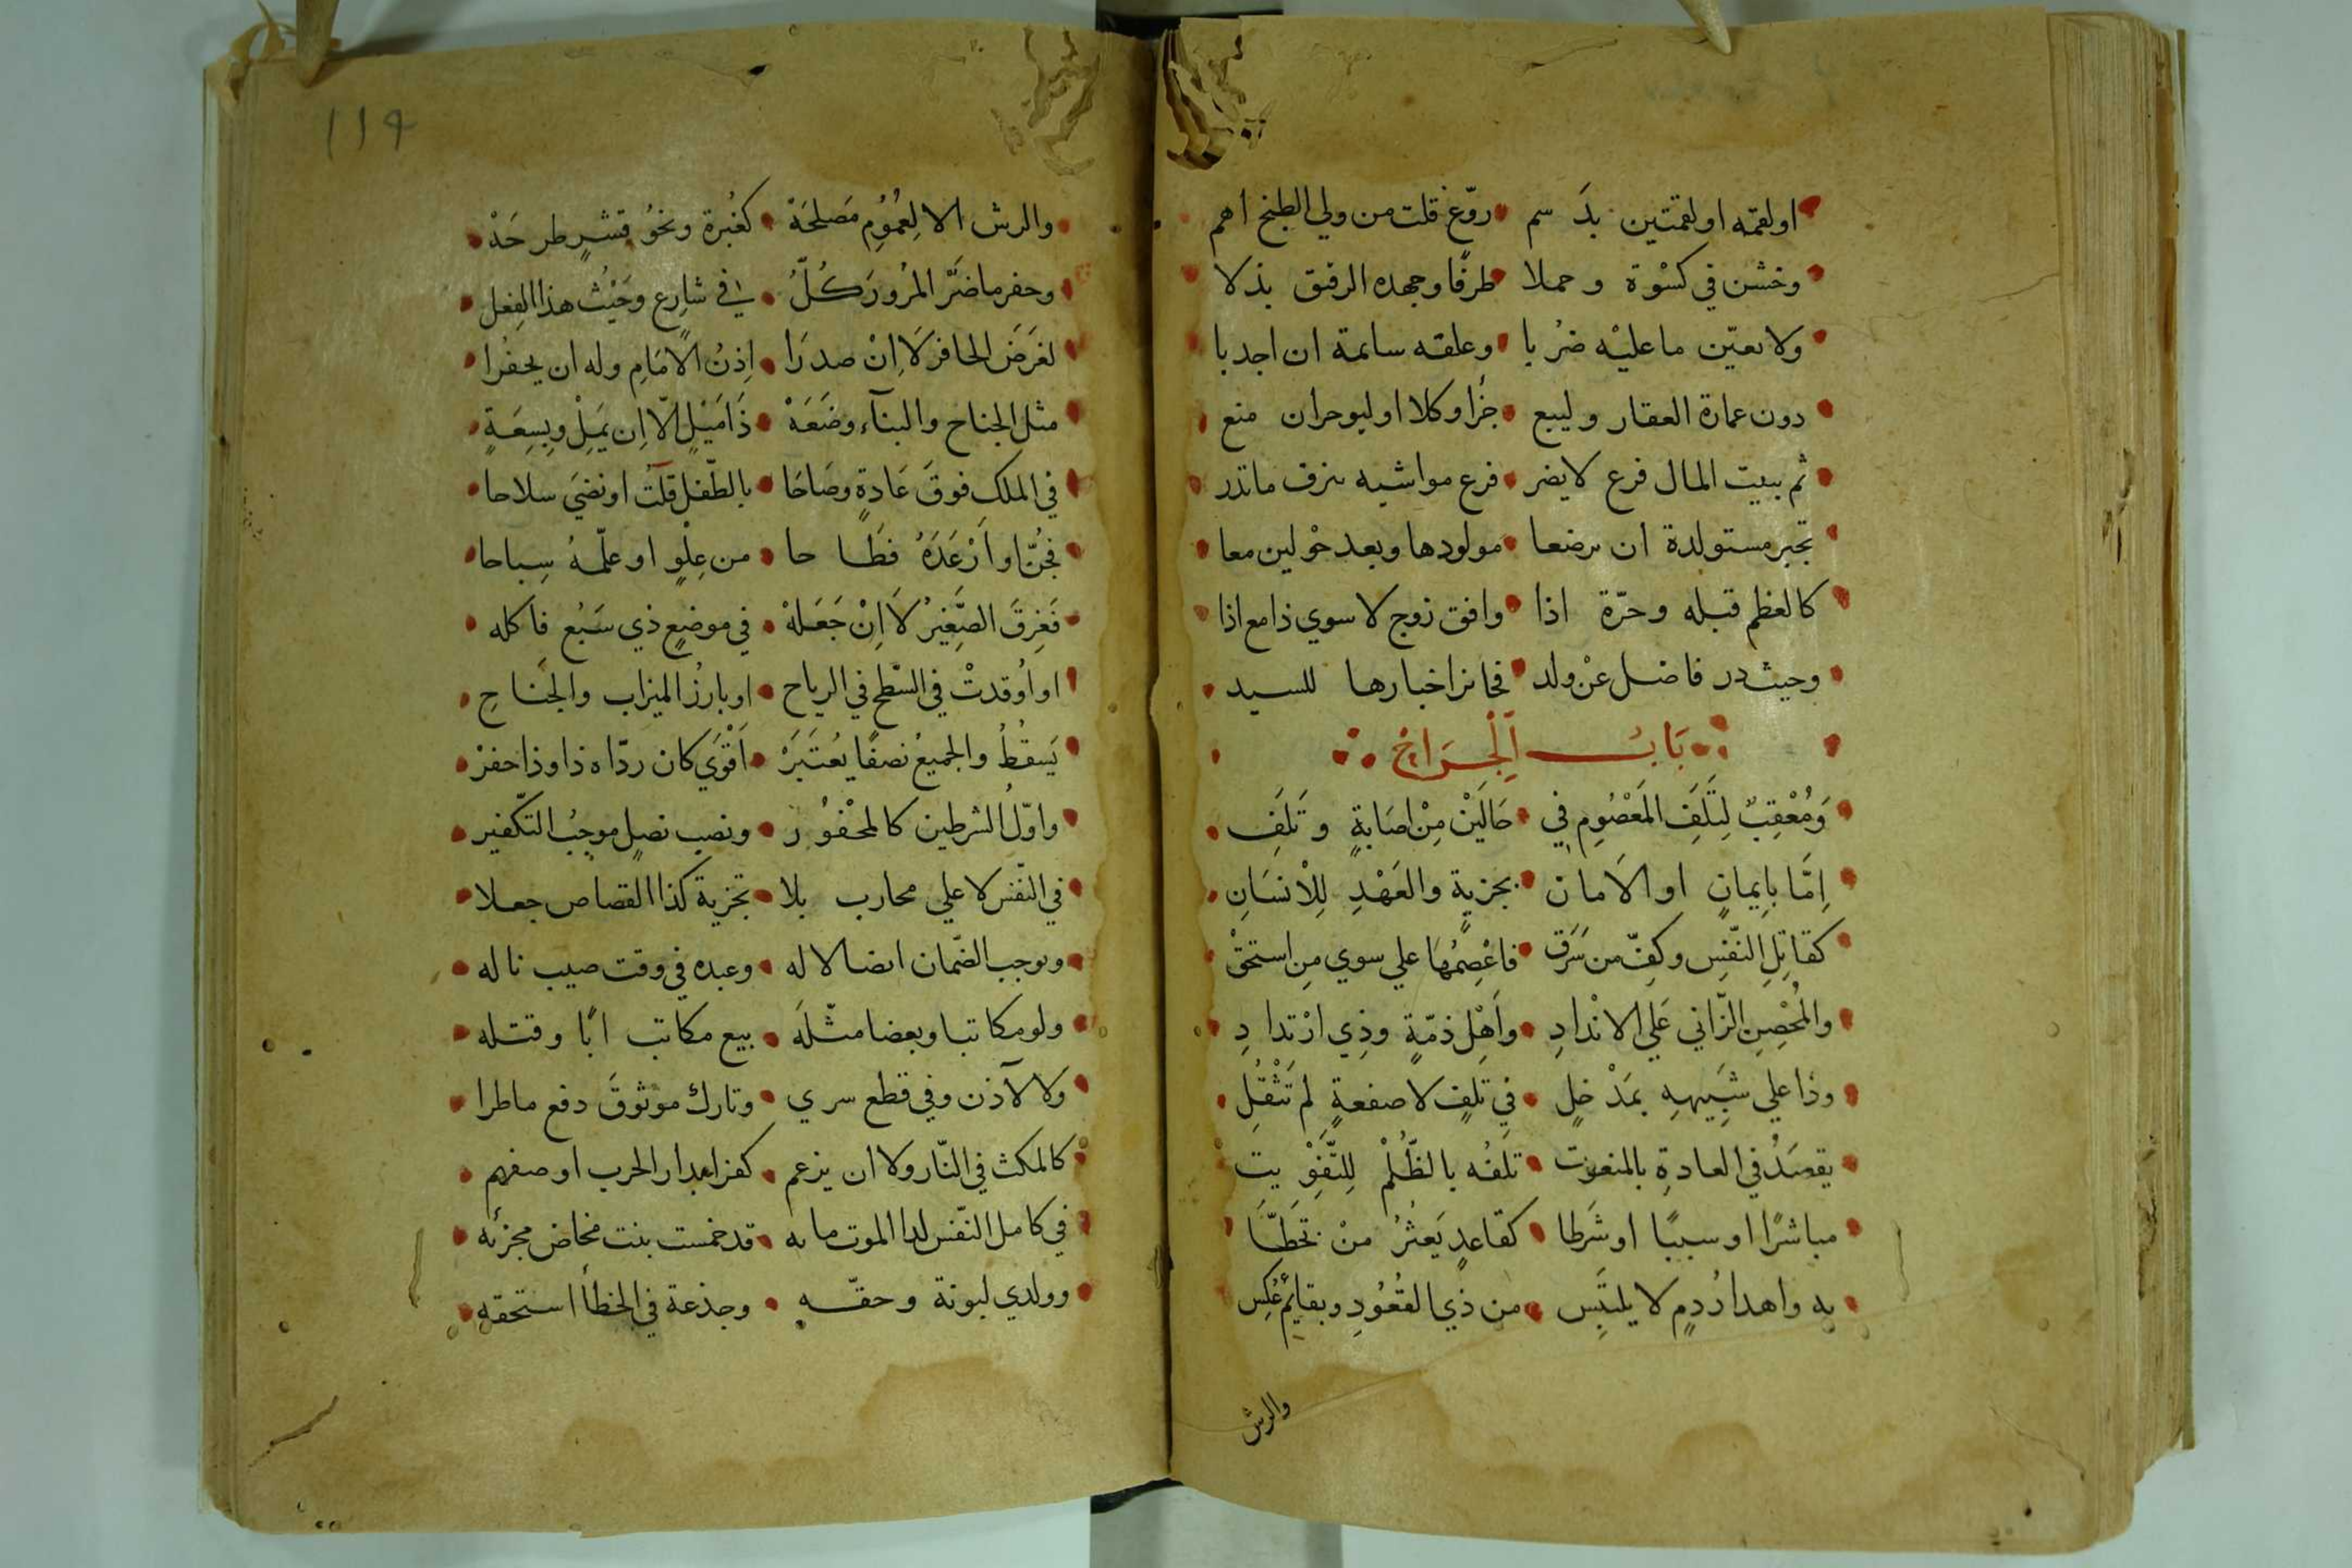 اولقمه اولقمتين بدسم روّغ قلت من ولي الطبخ اهم
وخشن في كسْوة وحملا طرفًا وجهده الرفيق بذلا
ولا يعيّن ما عليْه ضُربا وعلفه سائمة ان اجدبا
دون عمارة العقار وليبع جزأ وكلا اوليوجران منع
ثم ببيت المال فرع لا يضر فرع مواشيه بنزف ما تدر
تجبر مستولدة ان ترضعا مولودها وبعد حوْلين معا
كالفطم قبله وحرّة اذا وافق زوج لا سوي ذا مع اذا
وحيث در فاضل عنْ ولد فجائز اخبارها للسيد
بَابُ اَلْجِرَاحْ
وَمُعْقِبٌ لِتَلَفِ المَعْصُومِ في حَالَيْنْ مِنْ اصَابةٍ وتَلَفِ
اِمَّا بإيمانٍ او الاَمان بجزيةٍ والعَهْدِ لِلْانسَانِ
كقاتِلِ النّفِس وكفّ من سَرَق فاعْصِمُهَا علي سوي مِن استحقْ
والمُحْصِنِ الزّاني عَلي الانْدادِ واَهْل ذمّةٍ وذِي ارْتدادِ
وذا علي شبِيهِهِ بمَدْخلٍ في تَلفٍ لا صفعةٍ لم تَثْقُلِ
يقصَدُ في العادةِ بالمنعوت تلفُه بالظّلْم لِلتّفْويت
مباشرًا او سببًا او شَرطا كقاعدٍ يَعثرُ منْ تخَطّا
به واهدارُ دمٍ لا يلتبِس من ذي القُعُودِ وبقائمٍ عُكِس
والرش
١١٩
والرش الا لِعُمُومِ مَصلحَهْ كغُبرة ونحوُ قشرٍ طرحَهْ
وحفر ما ضَرَّ المُرورَ كُلُّ في شارعٍ وحَيْثُ هذا الفِعل
لغرَض الحافر لَا اِنْ صدرَا اِذنُ الاِمَامِ وله ان يحفُرا
مثل الجناح والبنآء وضَعَهْ ذَا مَيْلٍ الّا اِن يَمِلْ وبِسِعَةٍ
في الملك فوقَ عَادةٍ وصَاحَا بالطّفل قلتُ او نضيَ سلاحا
فجُنّ او اَرْعَدَهُ فطَاحا من عِلْوٍ او علّمهُ سِباحا
فَغرِقَ الصَّغِيرُ لَا اِنْ جَعَلهْ في موضعٍ ذي سَبُع فاكله
او اُوقدتْ في السّطح في الرياح او بارزُ الميزاب والجَنَاحِ
يَسقطُ والجميعُ نصفًا يُعتَبَرْ اَقْوَي كان ردّاه ذا وذا حفرْ
واوّلُ الشرطين كالمحْفوُر ونصب نصلٍ موجبُ التكّفير
في النّفس لا علي محارب بلا تجزية كذا القصاص جعلا
ويوجب الضّمان ايضا لا له وعبده في وقت صيب ناله
ولو مكاتبا وبعضا مثّلَه ببيع مكاتب ابًا وقتله
ولا لآذن وفي قطع سري وتارك موثوقَ دفع ما طرا
كالمكث في النّار ولا ان يزعم كفرا بدار الحرب او صفهم
في كامل النّفس لدا الموت مايه قد خمست بنت مخاض مجزئه
وولدي لبونة وحقّه وجذعة في الخطأ استحقه